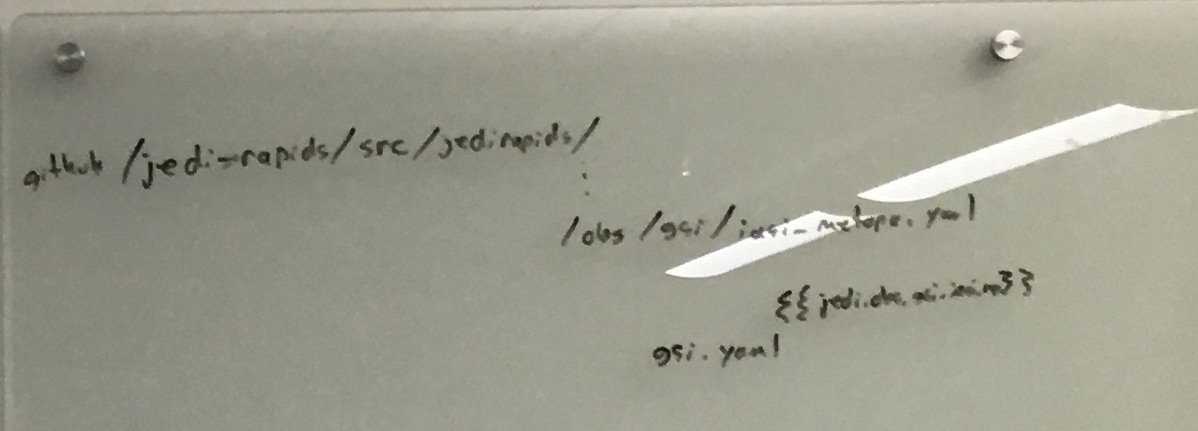 github /jedi-rapids/src/jedirapids/
:
/obs/gsi/iasi_metopa.yaml
{{jedi.obs.gsi.iasi.m}}
gsi.yaml